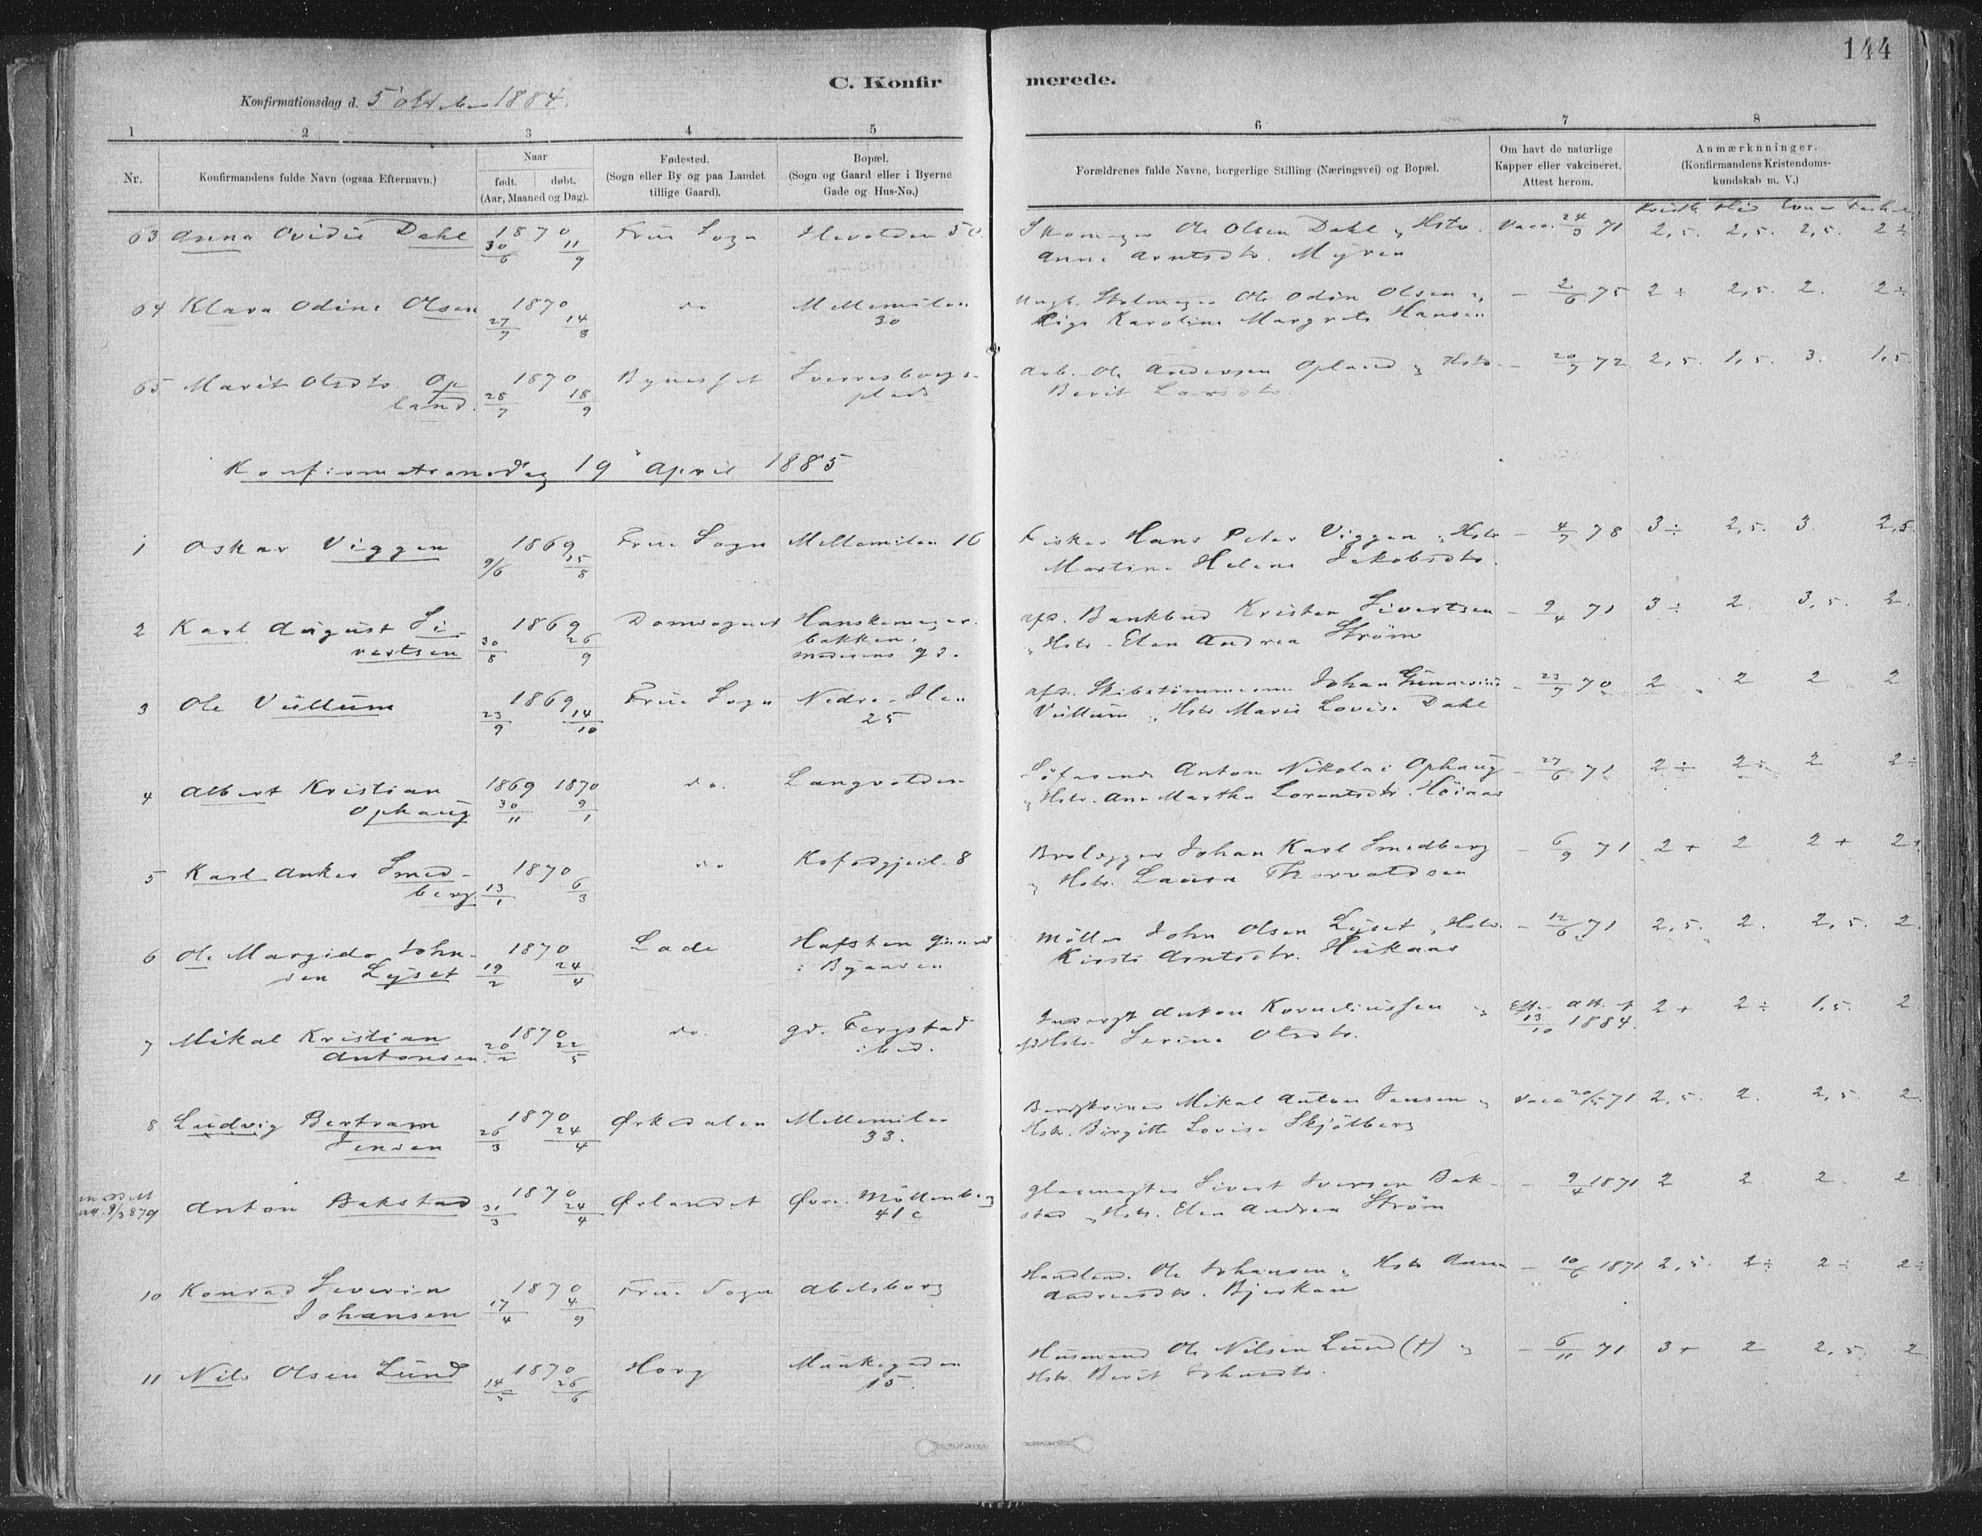 144
C. Konfirmerede.
Konfirmationsdag d. 5 oktober 1884.
1 2 3 4 5 6 7 8
Nr.
Konfirmandens fulde Navn (ogsaa Efternavn.)
Naar
født. døbt.
(Aar, Maaned og Dag).
Fødested.
(Sogn eller By og paa Landet
tillige Gaard).
Bopæl.
(Sogn og Gaard eller i Byerne
Gade og Hus-No.)
Forældrenes fulde Navne, borgerlige Stilling (Næringsvei) og Bopæl.
Om havt de naturlige
Kapper eller vakcineret.
Attest herom.
Anmærknninger.
(Konfirmandens Kristendoms-
kundskab m. V.)
63 Anna Ovidie Dahl 1870 30/6 11/9 Frue Sogn 50 Skomager Ole Olsen Dahl og Hstr. Vacc. 24/3 71 2,5. 2,5. 2,5. 2 ÷
Anne Arntsdtr. Myren
64 Klara Odine Olsen 1870 27/7 14/8 do Mellemilen 30 Ungk. Ole Odin Olsen og – 2/6 75 2 + 2,5. 2. 2 ÷
Pige Karoline Margrete Hansen
65 Marit Olsdtr. Opland. 1870 28/7 18/9 Bynesset Sverresborgs-
plads Arb. Ole Andersen Opland og Hstr. – 20/7 72 2,5. 1,5. 3. 1,5.
Berit Larsdtr.
Konfirmationsdag 19 April 1885
1 Oskar Viggen 1869 9/6 15/8 Frue Sogn Mellemilen 16 Fisker Hans Peter Viggen og Hstr. – 4/7 78 3 ÷ 2,5. 3. 2,5
Martine Helene Jakobsdtr.
2 Karl August Sivertsen 1869 30/8 26/9 Domsognet Hanskemager-
bakken. afs. Bankbud Kristen Sivertsen – 9/4 71 3 ÷ 2. 3,5. 2.
og Hstr. Elen Andrea Strøm
3 Ole Vullum 1869 23/9 14/10 Frue Sogn Nedre Ilen
25 afs. Skibstømmerm. Johan – 23/7 70 2 2 2 2
Vullum og Hstr. Marie Lovise Dahl
4 Albert Kristian
Ophaug 1869 30/11 1870 9/1 do. Langvolden Søfarende Anton Nikolai Ophaug – 27/6 71 2 ÷ 2 ÷ 2 2 ÷
og Hstr. Ane Martha Lorentsdtr. Høiaas
5 Karl Anker Smed-
berg 1870 13/1 6/3 do 8 Brolægger Johan Karl Smedberg – 6/9 71 2 + 2 2 + 2 +
og Hstr. Laura Thorvaldsen
6 Ole Margido John-
sen Lyset 1870 19/2 24/4 Lade Hafsten
i Byaasen Møller John Olsen Lyset og Hstr. – 12/6 71 2,5. 2. 2,5. 2.
Kirsti Arntsdtr.
7 Mikal Kristian
Antonsen. 1870 20/2 22/5 do. gd. Fergstad
ibid. Anton Korneliussen og 13/10 1884. 2 + 2 ÷ 1,5. 2
Hstr. Serine Olsdtr.
8 Ludvig Bertram
Jensen 1870 26/3 24/4 Ørkedalen Mellemilen
33. Mikal Anton Jensen og Vacc 20/5 71 2,5. 2. 2,5 2.
Hstr. Birgitte Lovise Skjølberg
Anton Bakstad 1870 31/3 24/4 Ørlandet Øvre Møllenberg
41 c Glasmagter Sivert Iversen Bak- – 9/4 1871 2 2 2. 2
stad og Hstr. Elen Andrea Strøm
10 Konrad Severin
Johansen 1870 17/4 4/9 Frue Sogn Abelsborg Handlend. Ole Johansen og Hstr. Anna – 10/6 1871 2,5. 2 ÷ 2 ÷ 2 ÷
Andreasdtr. Bjerkan
11 Nils Olsen Lund 1870 14/5 26/6 Horg Munkegaden
15. Husmand Ole Nilsen Lund (†) og – 6/11 71 3 + 2 2,5. 2
Hstr. Berit